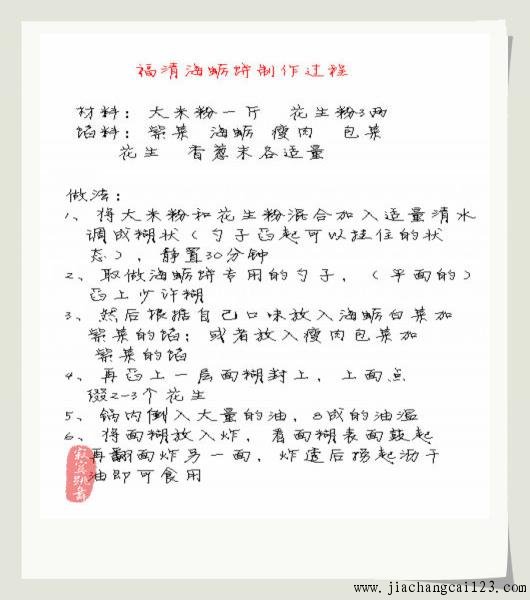 福清海蛎饼制作过程
材料：大米粉一斤 花生粉3两
馅料：紫菜 海蛎 瘦肉 包菜
花生 香葱末各适量
做法：
1、将大米粉和花生粉混合加入适量清水
调成糊状（勺子舀起可以挂住的状
态），静置30分钟
2、取做海蛎饼专用的勺子，（平面的）
舀上少许糊
3、然后根据自己口味放入海蛎白菜加
紫菜的馅；或者放入瘦肉包菜加
紫菜的馅
4、再舀上一层面糊封上，上面点
缀2-3个花生
5、锅内倒入大量的油，8成的油温
6、将面糊放入炸，看面糊表面鼓起
再翻面炸另一面，炸透后捞起沥干
油即可食用
寂寞跳舞
www.jiachangcai123.com